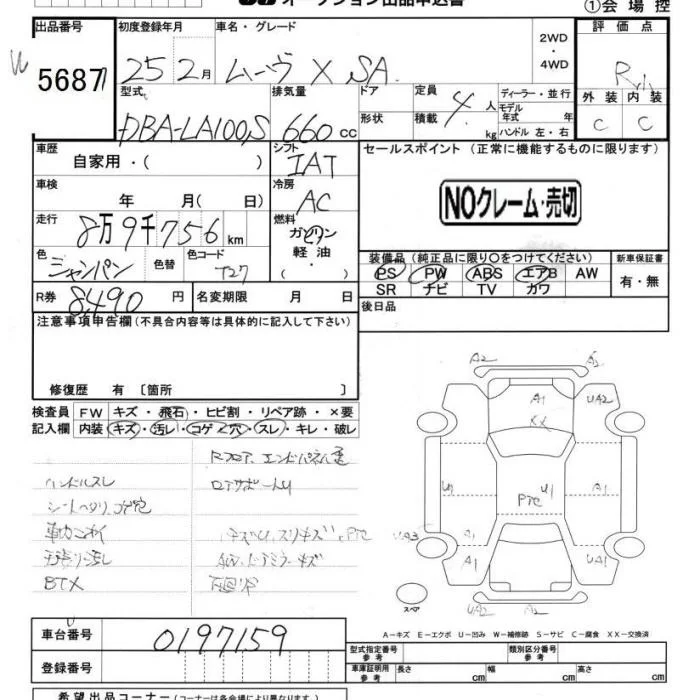 オークション出品申込書
①会場控
出品番号
5687
初度登録年月
25 2月
車名・グレード
ムーヴ X SA
2WD
・
4WD
評価点
R
外装 内装
C C
型式
DBA-LA100S
排気量
660 cc
ドア
形状
定員
積載
4 人
kg
ディーラー・並行
モデル
年式 年
ハンドル 左・右
車歴
自家用・( )
シフト
IAT
セールスポイント (正常に機能するものに限ります)
NOクレーム・売切
車検
年 月( 日)
冷房
AC
走行
8万9千756 km
燃料
ガソリン
軽油・
( )
色
シャンパン
色替
色コード
T27
装備品 (純正品に限り○をつけてください)
PS PW ABS エアB AW
SR ナビ TV カワ
新車保証書
有・無
R券
8,490 円
名変期限 月 日
後日品
注意事項申告欄 (不具合内容等は具体的に記入して下さい)
修復歴 有 [箇所 ]
検査員
記入欄
FW キズ・飛石・ヒビ割・リペア跡・×要
内装 キズ・汚レ・コゲ・穴・スレ・キレ・破レ
Rフロア、エンドパネル
ハンドルスレ
シートヘタリ、コゲ穴
天張り汚し
BTX
A2
A2
A1
UA2
XX
U1
U1
A1
PTC
UA3
A1
A1
A1
UA1
UA2
A2
スペア
A-キズ E-エクボ U-凹み W-補修跡 S-サビ C-腐食 XX-交換済
車台番号
0197159
登録番号
型式指定番号
参考
類別区分番号
参考
車庫証明用
参考
長さ cm
幅 cm
高さ cm
希望出品コーナー (コーナーは各会場により異なります。)